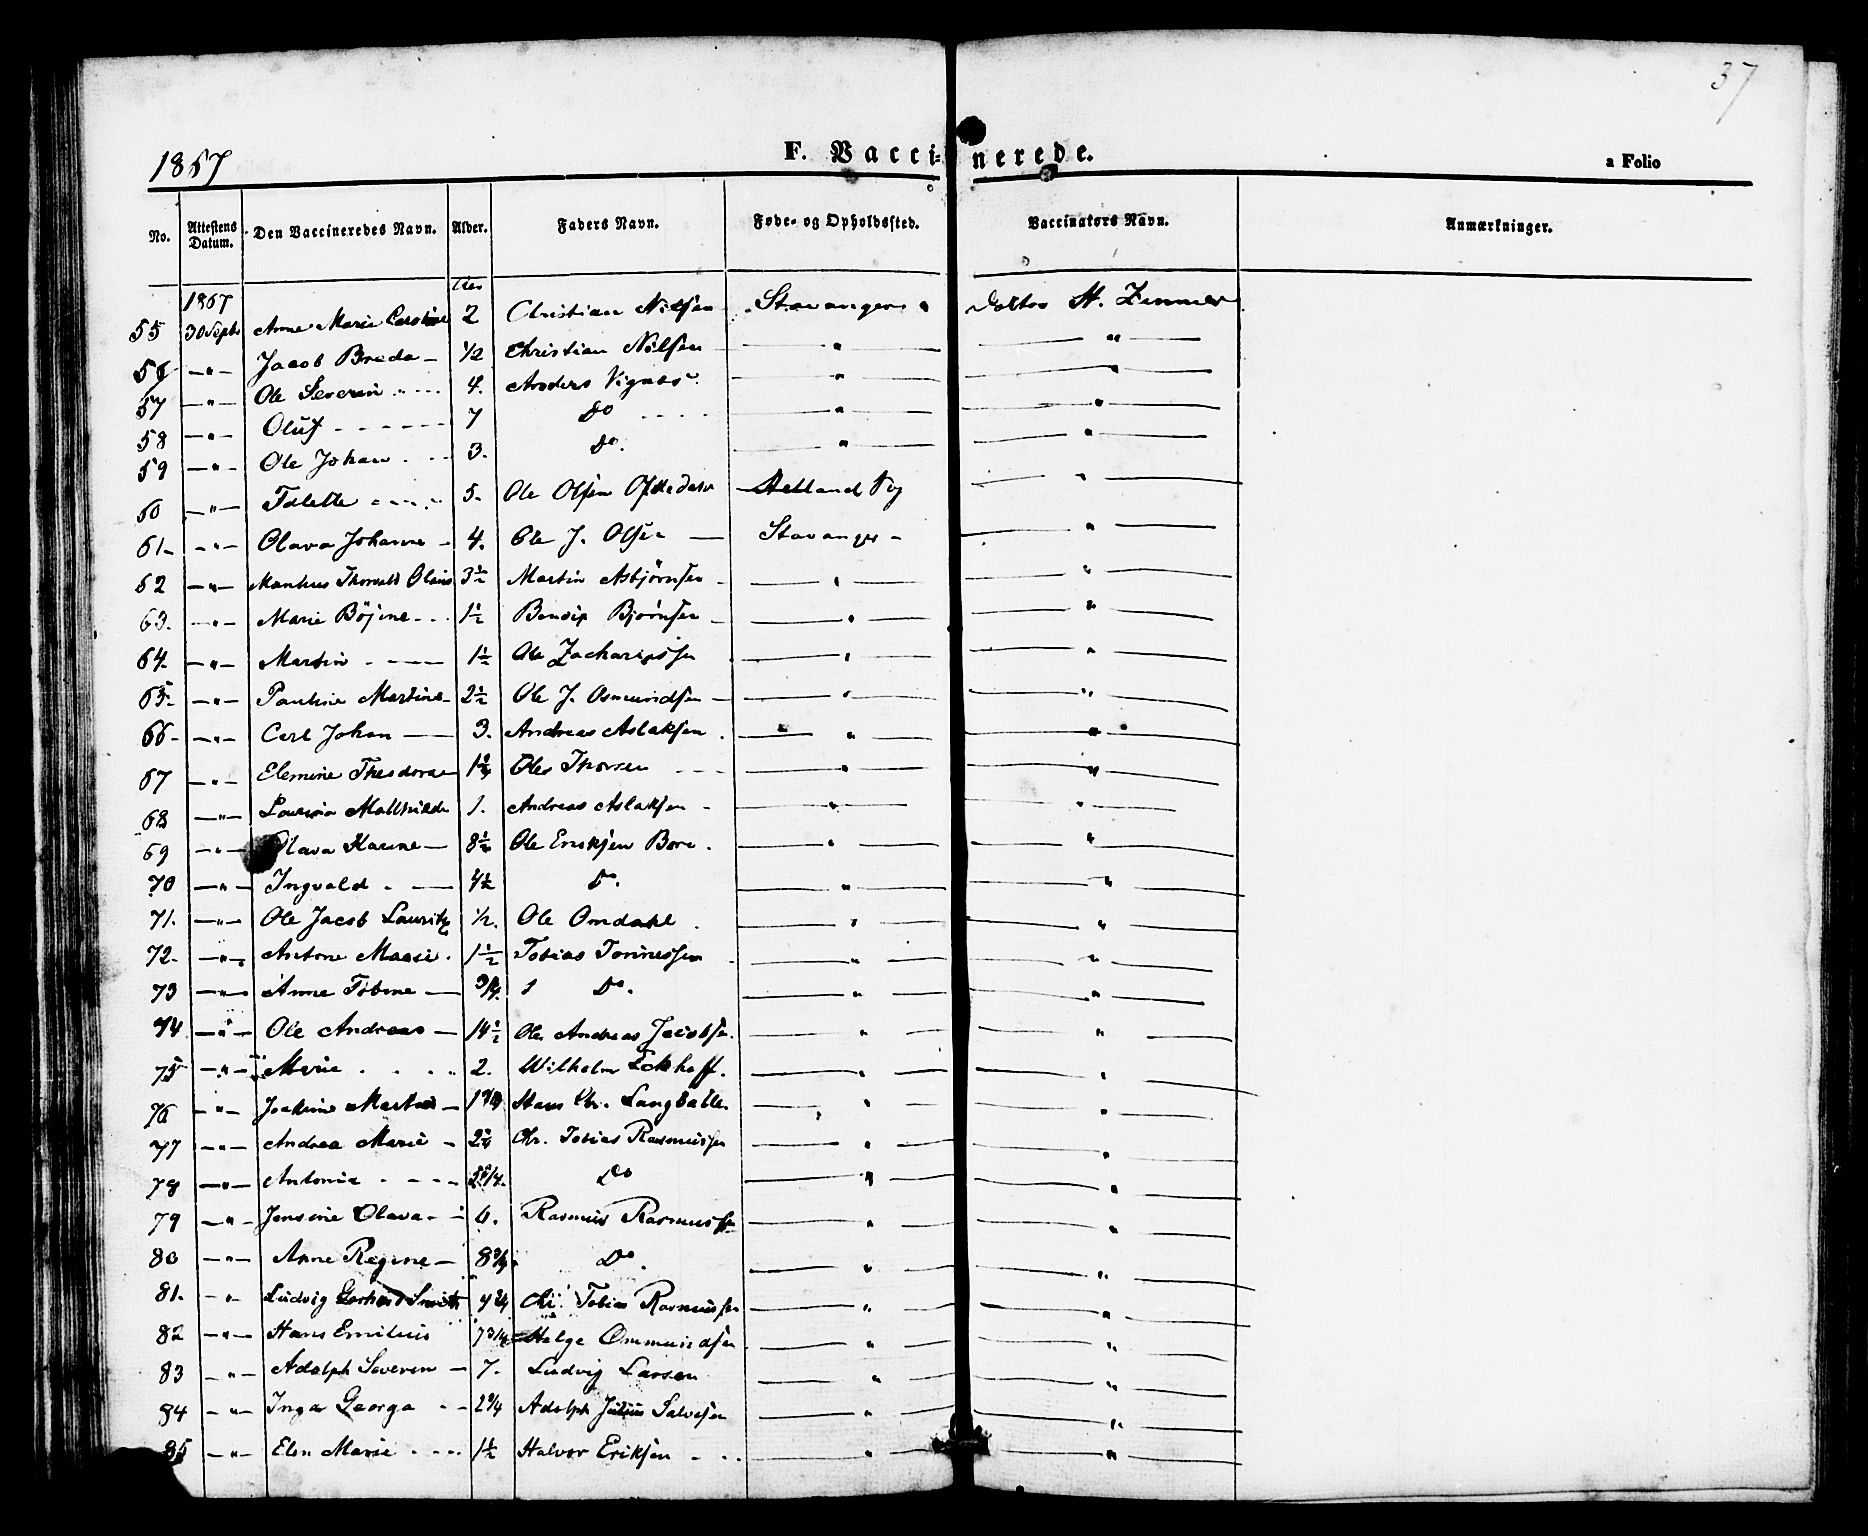 37
1867
F. Vaccinerede.
a Folio
No. Attestens Datum. Den Vaccineredes Navn. Alder. Faders Navn. Føde- og Opholdssted. Vaccinators Navn. Anmærkninger.
1867
55 30 Septb Anne Marie Caroline 2 Christian Nilsen Stavanger Doktor Zimmer
56 — " — Jacob Breda — 1/2 Christian Nilsen — " — — " —
57 — " — Ole Severin 4. Anders — " — — " —
58 — " — Oluf 7 Do — " — — " —
59 — " — Ole Johan 3. Do. — " — — " —
60 — " — 5. Ole Olsen Helland — " —
61 — " — Olava Johanne 4. Ole J. Olsen Stavanger — " —
62 — " — Thorvald Olaus 3 1/2 Martin Asbjörnsen — " — — " —
63. — " — Marie 1 1/2 Bjørnsen — " — — " —
64 — " — Martin 1 1/2 Ole Zachariassen — " — — " —
65 — " — Pauline Martine 2 1/2 Ole J. Osmundsen — " — — " —
66 — " — Carl Johan 3. Andreas Aslaksen — " — — " —
67 — " — Theodora Thorsen — " — — " —
68 — " — 1. Andreas Aslaksen — " — — " —
69 — " — Olava 8 1/2 Ole Eriksen Bore — " — — " —
70 — " — Ingvald 4 1/2 Do. — " — — " —
71. — " — Ole Jacob Lauritz 1/2. Ole Omdahl — " — — " —
72. — " — Antone Marie 1 1/2 Tobias Tønnessen — " — — " —
73 — " — Anne 3/4. Do. — " — — " —
74 — " — Ole Andreas — 14 1/2 Ole Andreas Jacobsen — " — — " —
75 — " — 2. Wilhelm Eckhoff. — " — — " —
76 — " — Hans Chr. — " — — " —
77 — " — Andrea Marie Chr. Tobias Rasmussen — " — — " —
78 — " — Antonia Do — " — — " —
79 — " — Jensine Olava 6. Rasmus Rasmussen — " — — " —
80 — " — Anne Regine — 8 3/4 Do. — " — — " —
81. — " — Ludvig Gerhard Smith Chr. Tobias Rasmussen — " — — " —
82 — " — Hans Emilius 7 3/4 Helge Ommundsen — " — — " —
83 — " — Adolph Severin — 7. Ludvig Larsen — " — — " —
84 — " — Inga Georga 2 3/4 Adolph Julius Salvesen — " — — " —
85 — " — Elen Marie 1 1/2 Halvor Eriksen — " — — " —